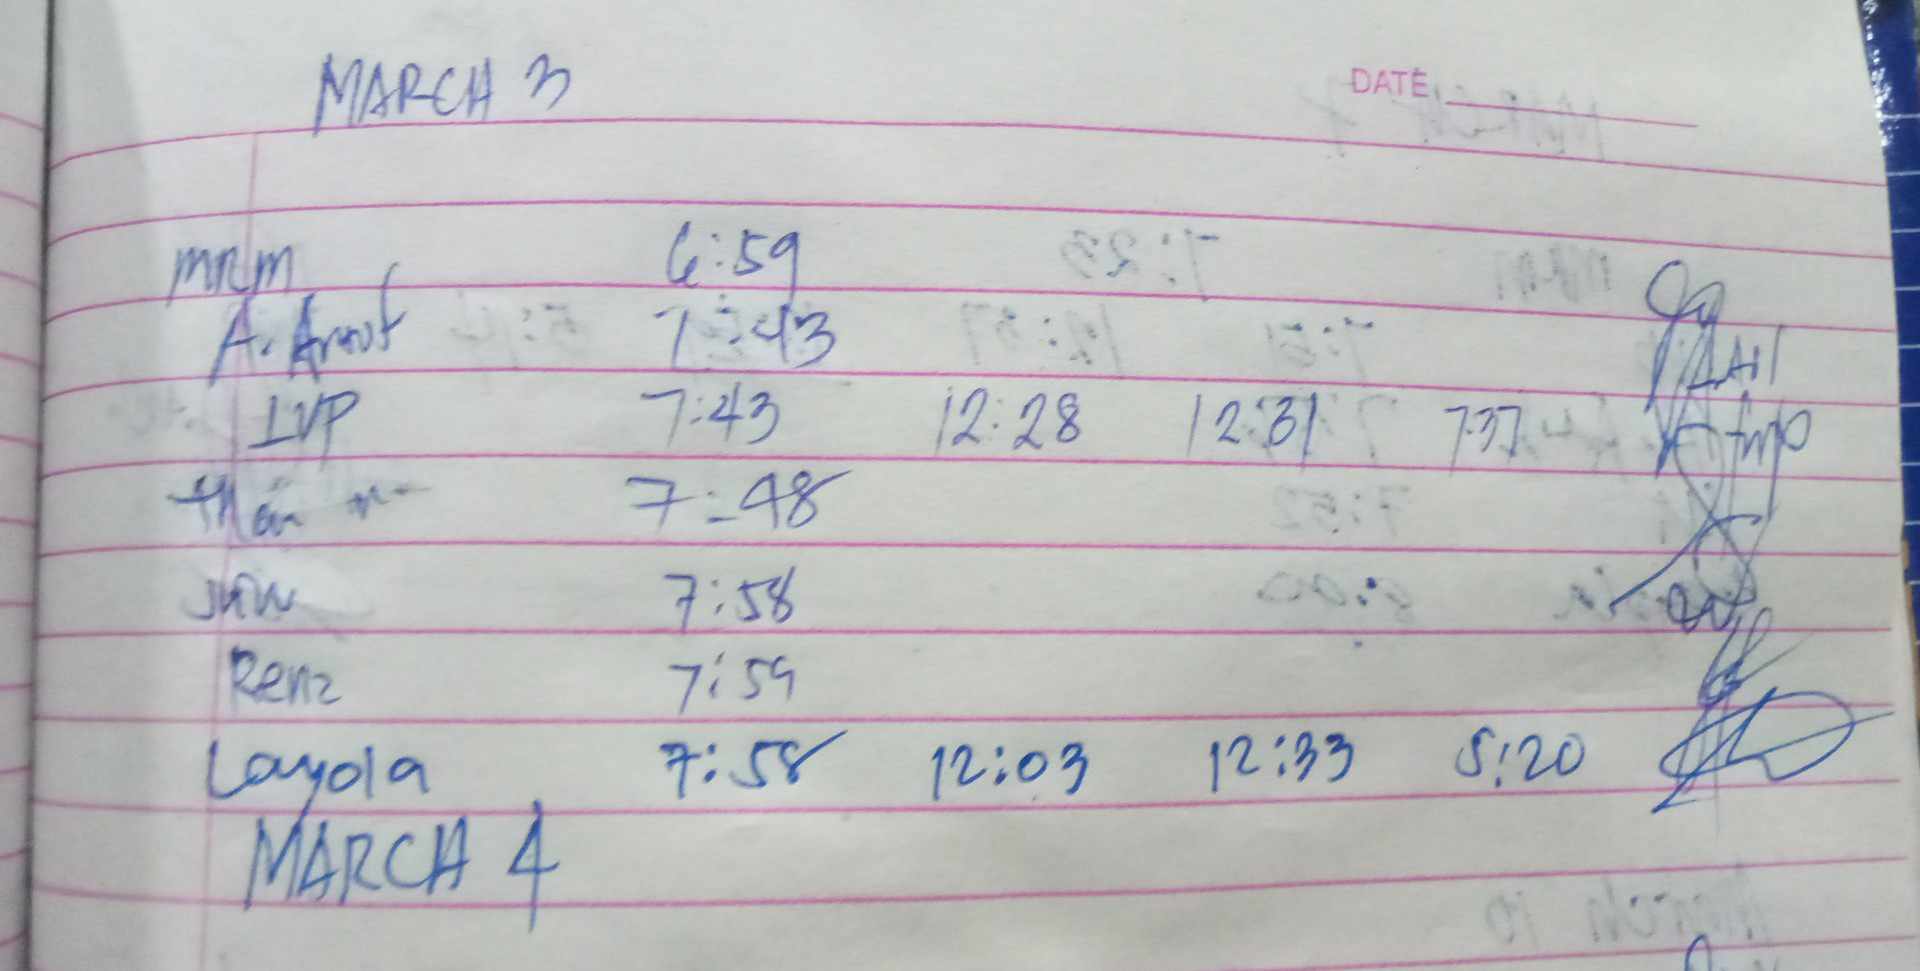 MARCH 3
DATE
MRM 6:59
A. 7:43
IVP 7:43 12:28 12:31 7:37
7:48
7:58
Renz 7:59
Layola 7:58 12:03 12:33 5:20
MARCH 4